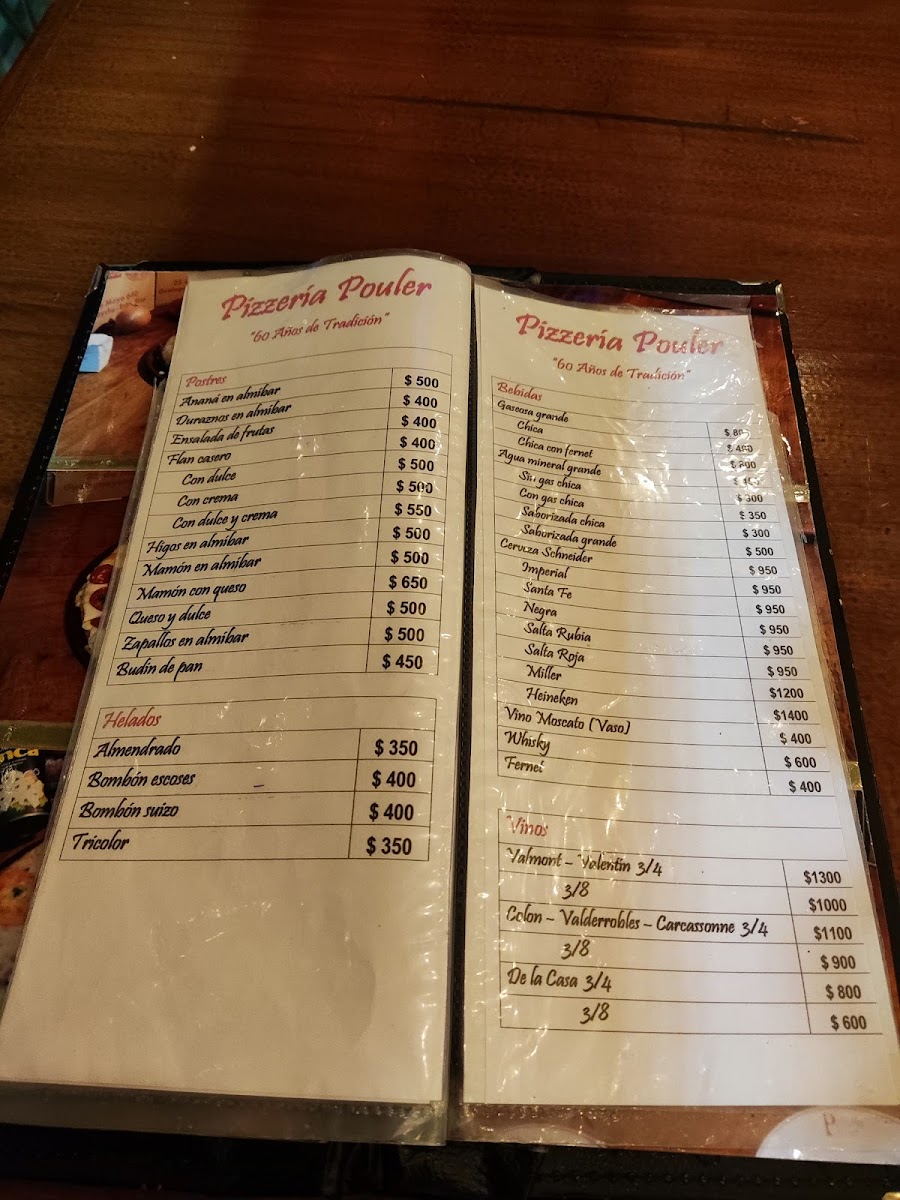 Pizzería Pouler
"60 Años de Tradición"
Postres
Ananá en almibar $ 500
Duraznos en almibar $ 400
Ensalada de frutas $ 400
Flan casero $ 400
Con dulce $ 500
Con crema $ 500
Con dulce y crema $ 550
Higos en almibar $ 500
Mamón en almibar $ 500
Mamón con queso $ 650
Queso y dulce $ 500
Zapallos en almibar $ 500
Budin de pan $ 450
Helados
Almendrado $ 350
Bombón escoses $ 400
Bombón suizo $ 400
Tricolor $ 350
Pizzería Pouler
"60 Años de Tradición"
Bebidas
Gaseosa grande
Chica
Chica con fernet $ 800
Agua mineral grande
Sin gas chica $ 300
Con gas chica $ 350
Saborizada chica $ 300
Saborizada grande $ 500
Cerveza Schneider $ 950
Imperial $ 950
Santa Fe $ 950
Negra $ 950
Salta Rubia $ 950
Salta Roja $ 950
Miller $1200
Heineken $1400
Vino Moscato (Vaso) $ 400
Whisky $ 600
Fernet $ 400
Vinos
Valmont – Valentín 3/4 $1300
3/8 $1000
Colon – Valderrobles – Carcassonne 3/4 $1100
3/8 $ 900
De la Casa 3/4 $ 800
3/8 $ 600